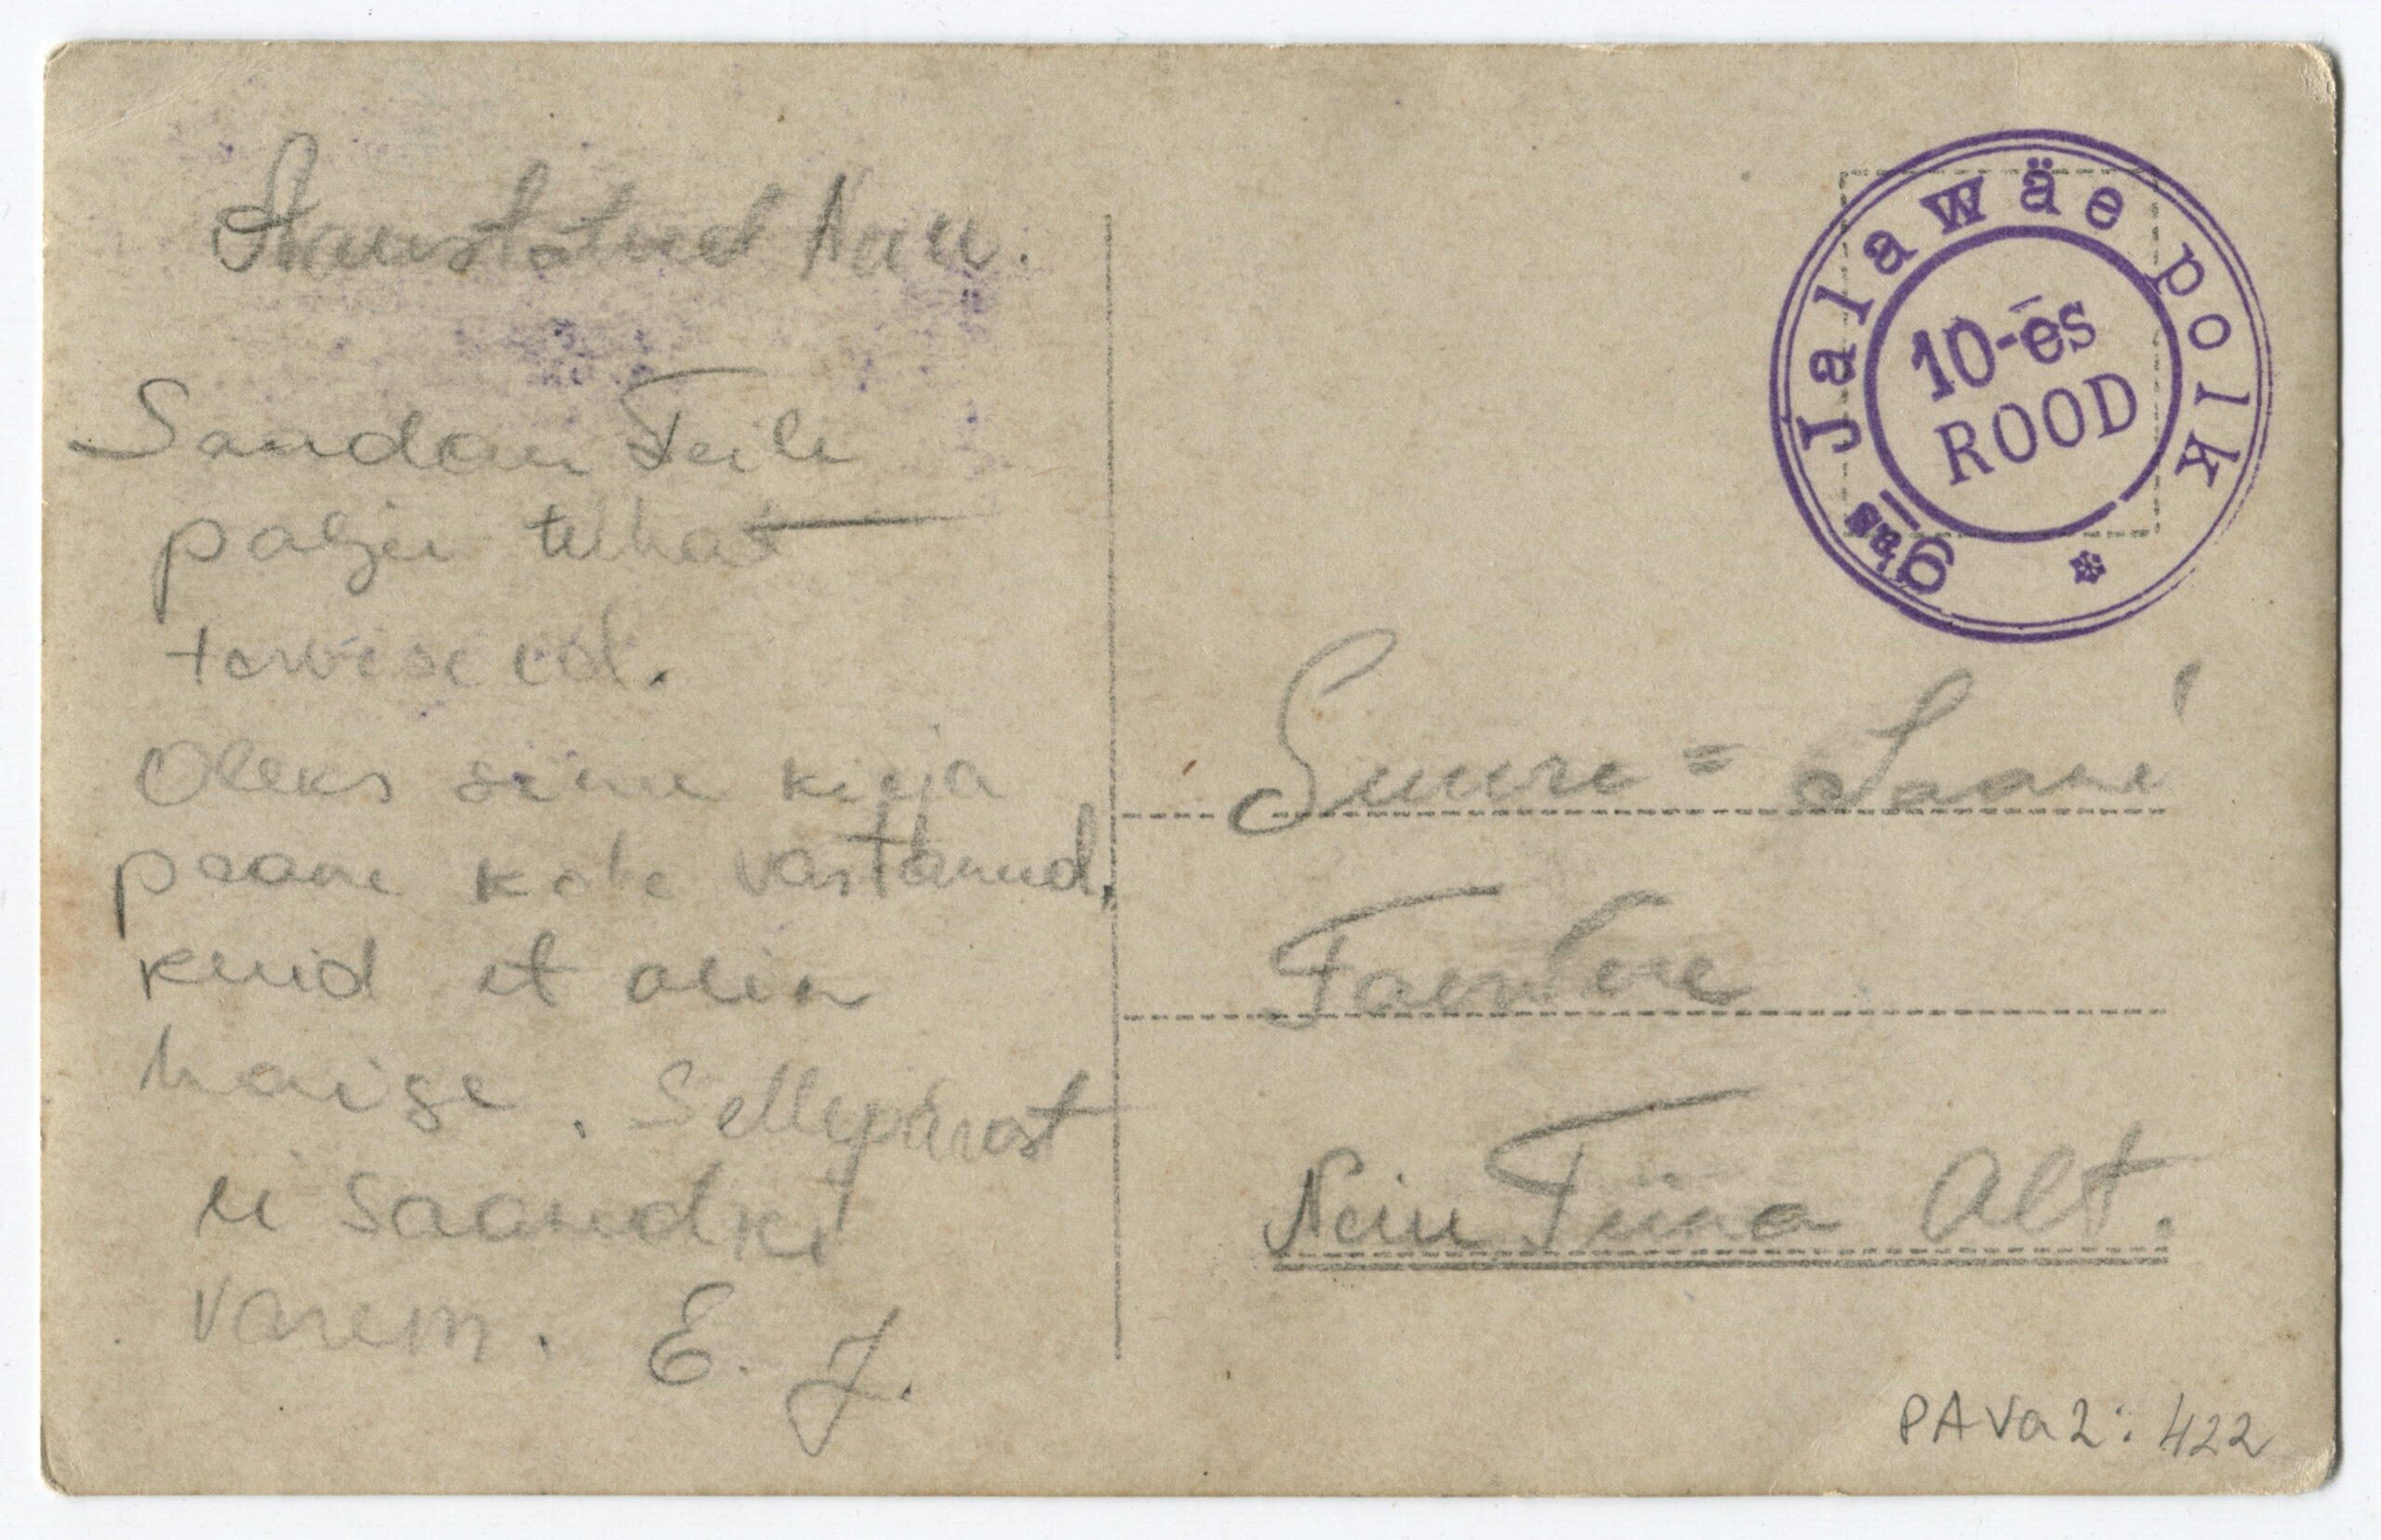 Armastatud Neiu.
Saadan Teile
palju tuhat
terviseid.
Oleks sinu kirja
peale kohe vastanud,
kuid et olin
haige. Sellepärast
ei saanudki
varem. E. J.
9-as Jalawäe polk
10-es
ROOD
Suure-Jaani
Neiu Tiina Alt.
PAVa2: 422